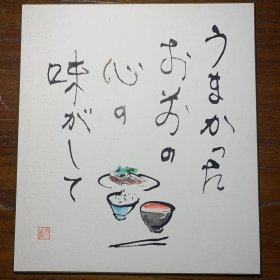 うまかった
お前の
心の
味がして